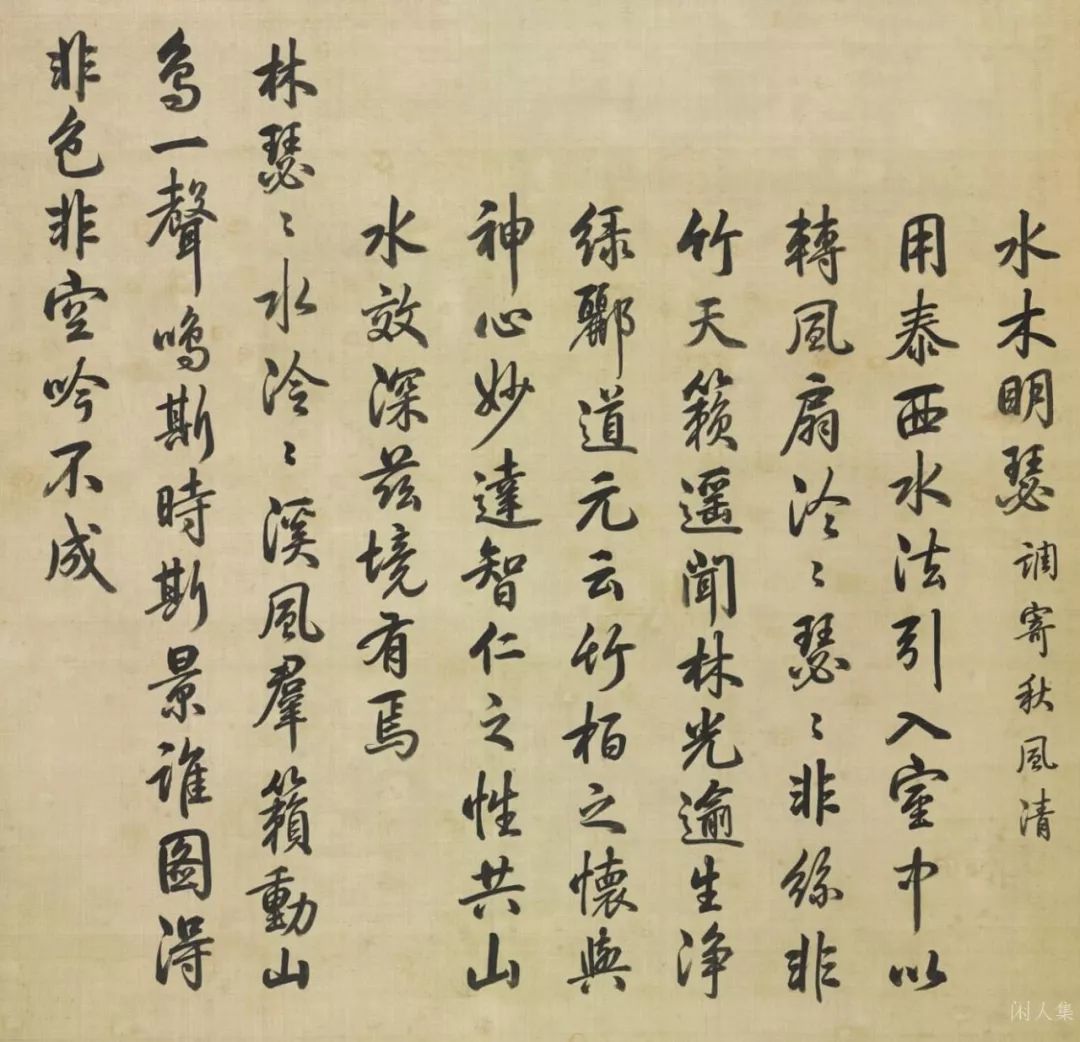 水木明瑟 調寄秋風清
用泰西水法引入室中以
轉風扇泠〻瑟〻非絲非
竹天籟遥聞林光逾生净
緑酈道元云竹柏之懷與
神心妙達智仁之性共山
水效深兹境有焉
林瑟〻水泠〻溪風羣籟動山
鳥一聲鳴斯時斯景誰圖得
非色非空吟不成
闲人集